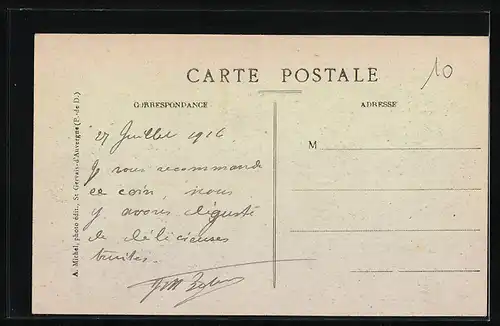 CARTE POSTALE
10
CORRESPONDANCE
ADRESSE
27 Juillet 1916
Je vous recommande
ce coin, nous
y avons dégusté
de délicieuses
truites.
M
A. Michel, photo édit., St Gervais-d'Auvergne (P.-de D.)